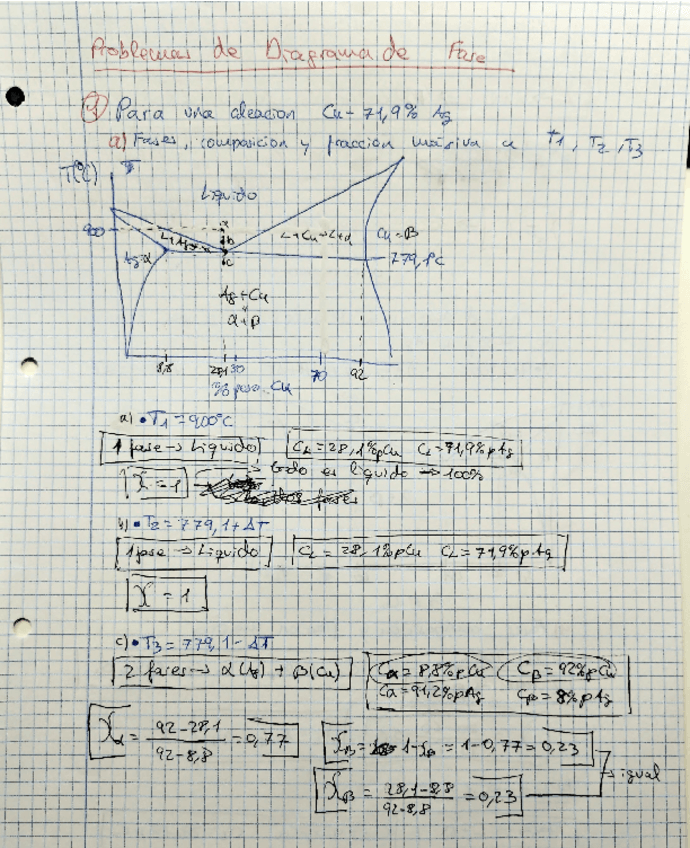 Problemas de Diagrama de Fase
① Para una aleacion Cu - 71,9% Ag
a) Fases, composicion y fraccion másiva a T1, T2, T3
T(ºC)
Líquido
900
a
b
c
L+Cu → L+α
Cu=β
Ag=α
779,1ºC
Ag+Cu
α+β
8,8 28,1 30 70 92
% peso Cu
a) • T1 = 900ºC
1 fase → Líquido CL = 28,1%pCu CL = 71,9%pAg
X = 1 → todo es líquido → 100%
b) • T2 = 779,1 + ΔT
1 fase → Líquido CL = 28,1%pCu CL = 71,9%pAg
X = 1
c) • T3 = 779,1 - ΔT
2 fases → α(Ag) + β(Cu) Cα = 8,8%pCu Cβ = 92%pCu
Cα = 91,2%pAg Cβ = 8%pAg
Xα = 92-28,1 / 92-8,8 = 0,77 Xβ = 1-Xα = 1-0,77 = 0,23
→ igual
Xβ = 28,1-8,8 / 92-8,8 = 0,23